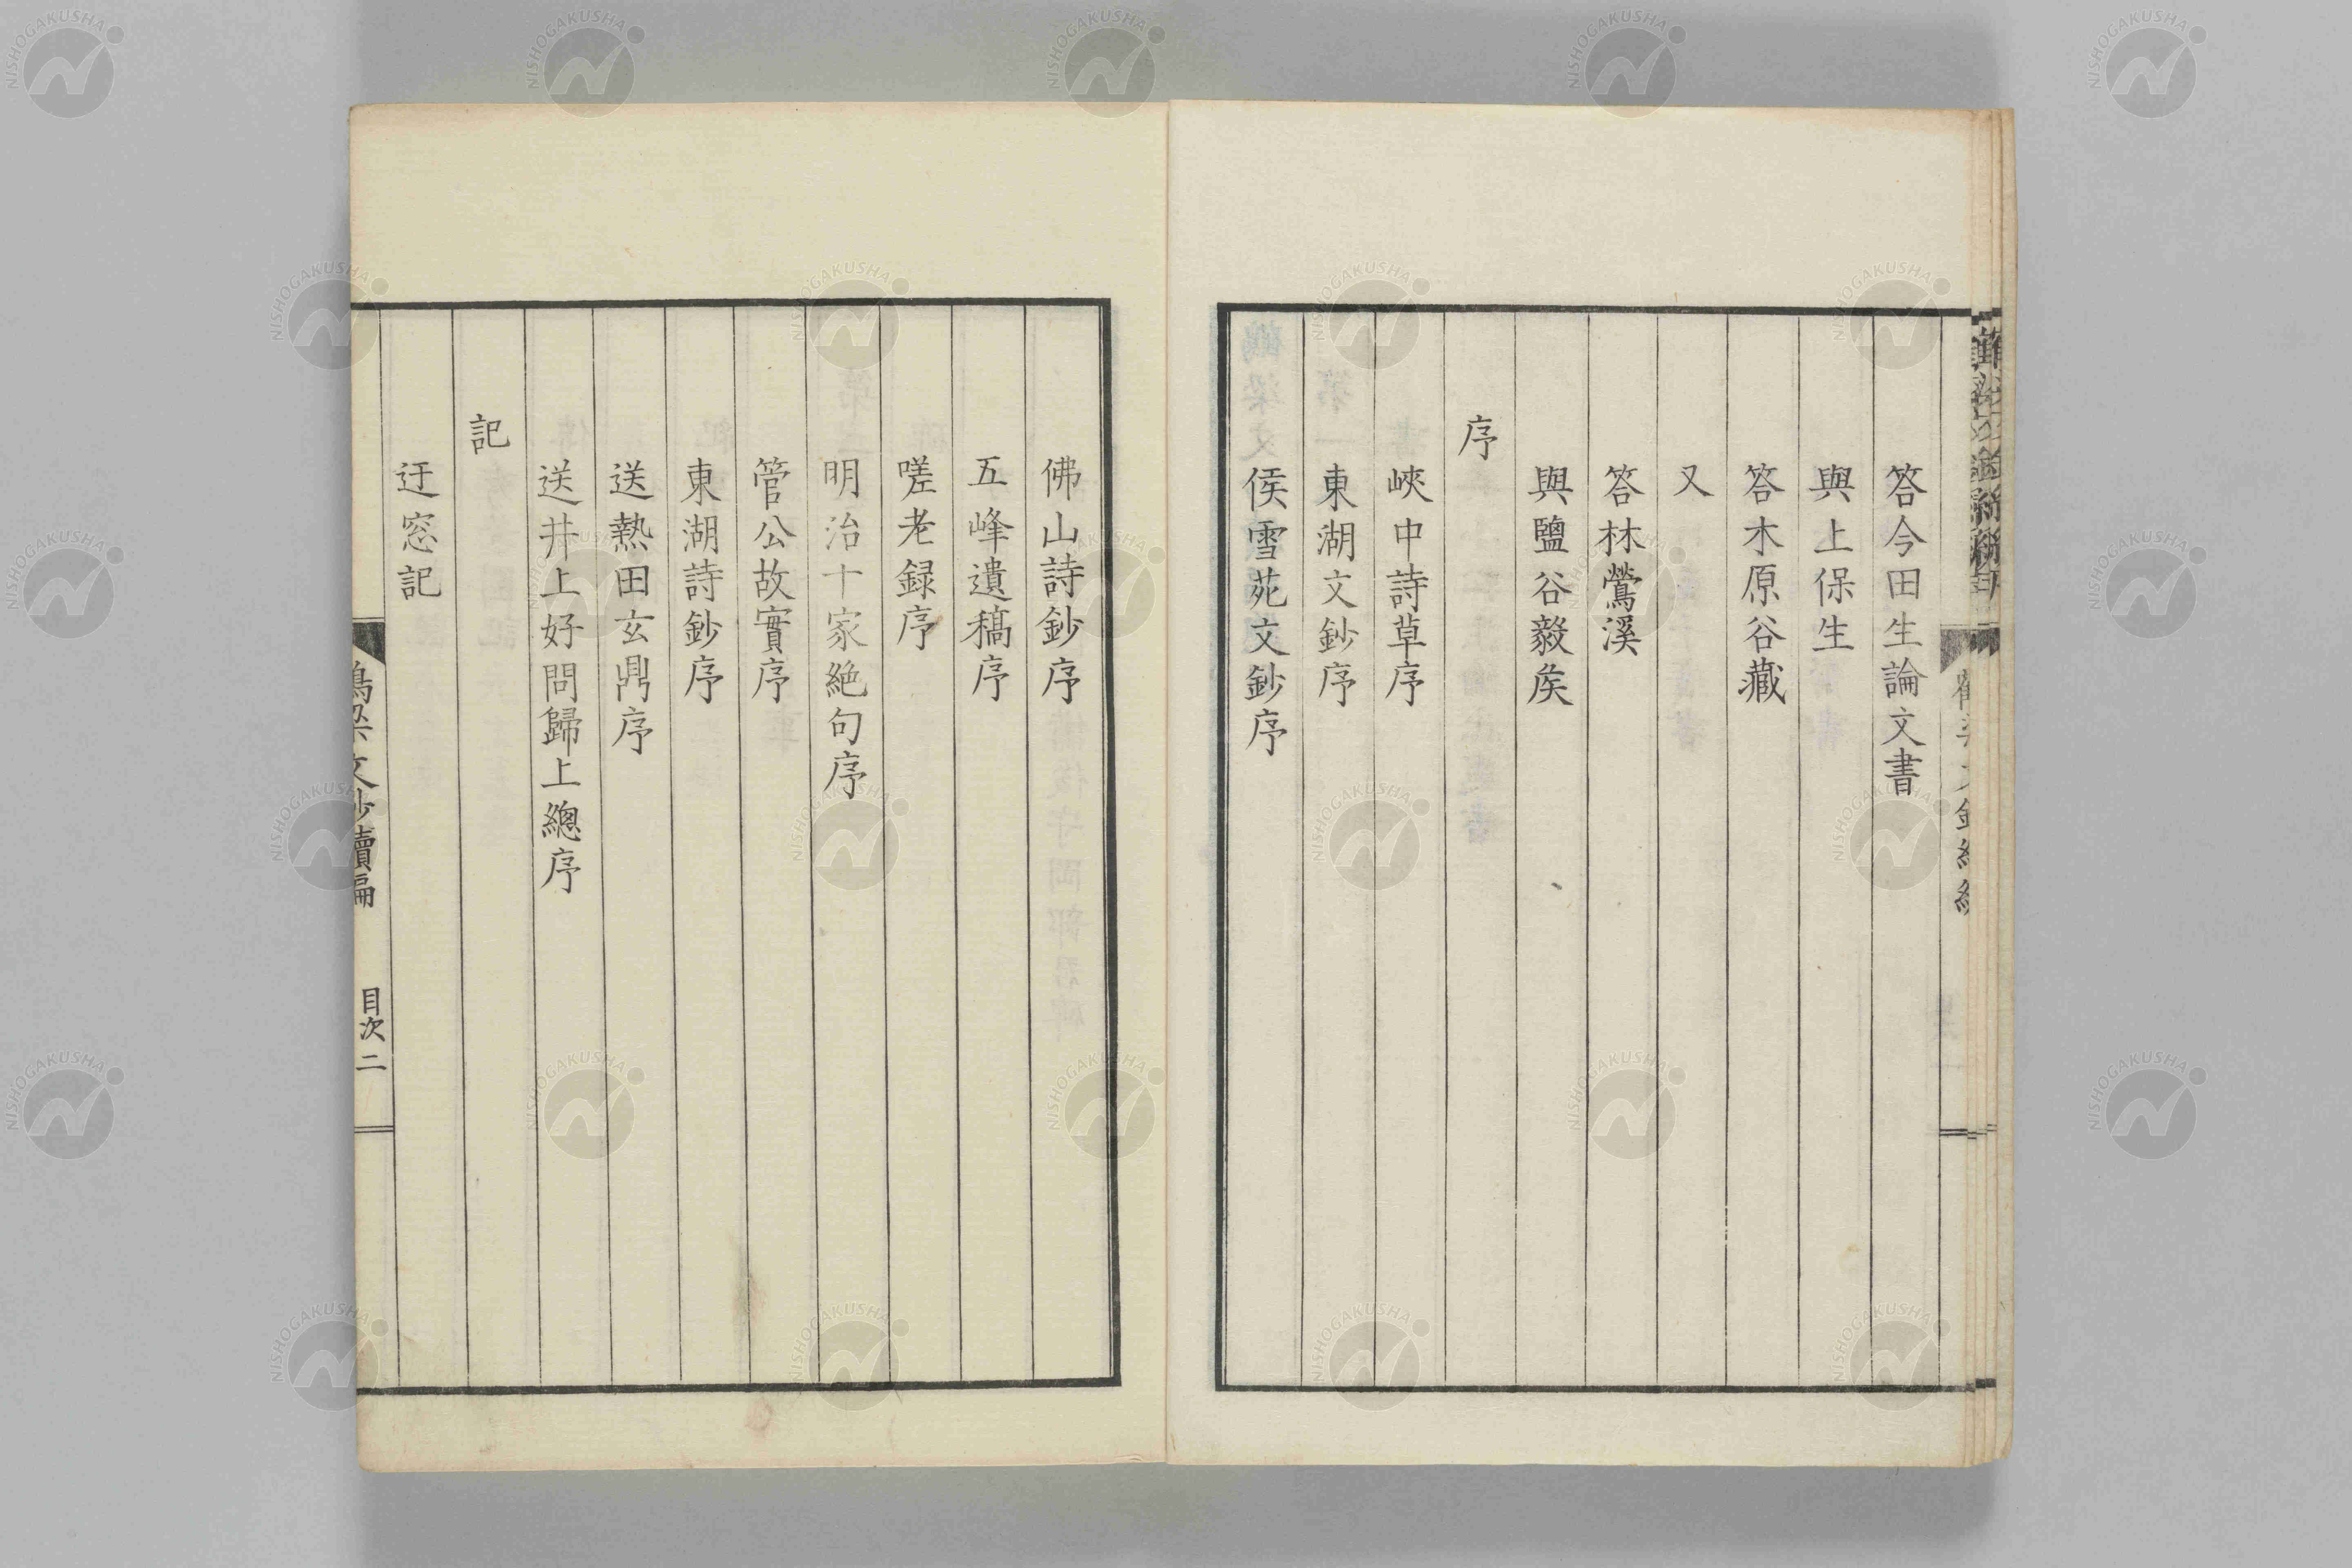 答今田生論文書
與上保生
答木原谷藏
又
答林鶯溪
與鹽谷毅侯
序
峽中詩草序
東湖文鈔序
侯雪苑文鈔序
佛山詩鈔序
五峰遺稿序
嗟老録序
明治十家絶句序
管公故實序
東湖詩鈔序
送熱田玄鼎序
送井上好問歸上總序
記
迂窓記
文鈔續編
目次 二
NISHOGAKUSHA